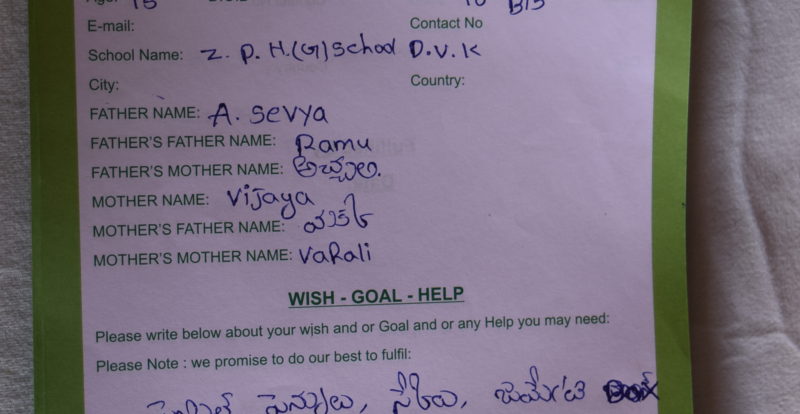 Age: 15
E-mail: Contact No
School Name: Z. P. H.(G)School D.V.K
City: Country:
FATHER NAME: A. Sevya
FATHER'S FATHER NAME: Ramu
FATHER'S MOTHER NAME: అచ్చాలు.
MOTHER NAME: Vijaya
MOTHER'S FATHER NAME:
MOTHER'S MOTHER NAME: VaRali
WISH - GOAL - HELP
Please write below about your wish and or Goal and or any Help you may need:
Please Note : we promise to do our best to fulfil:
పెన్నులు,